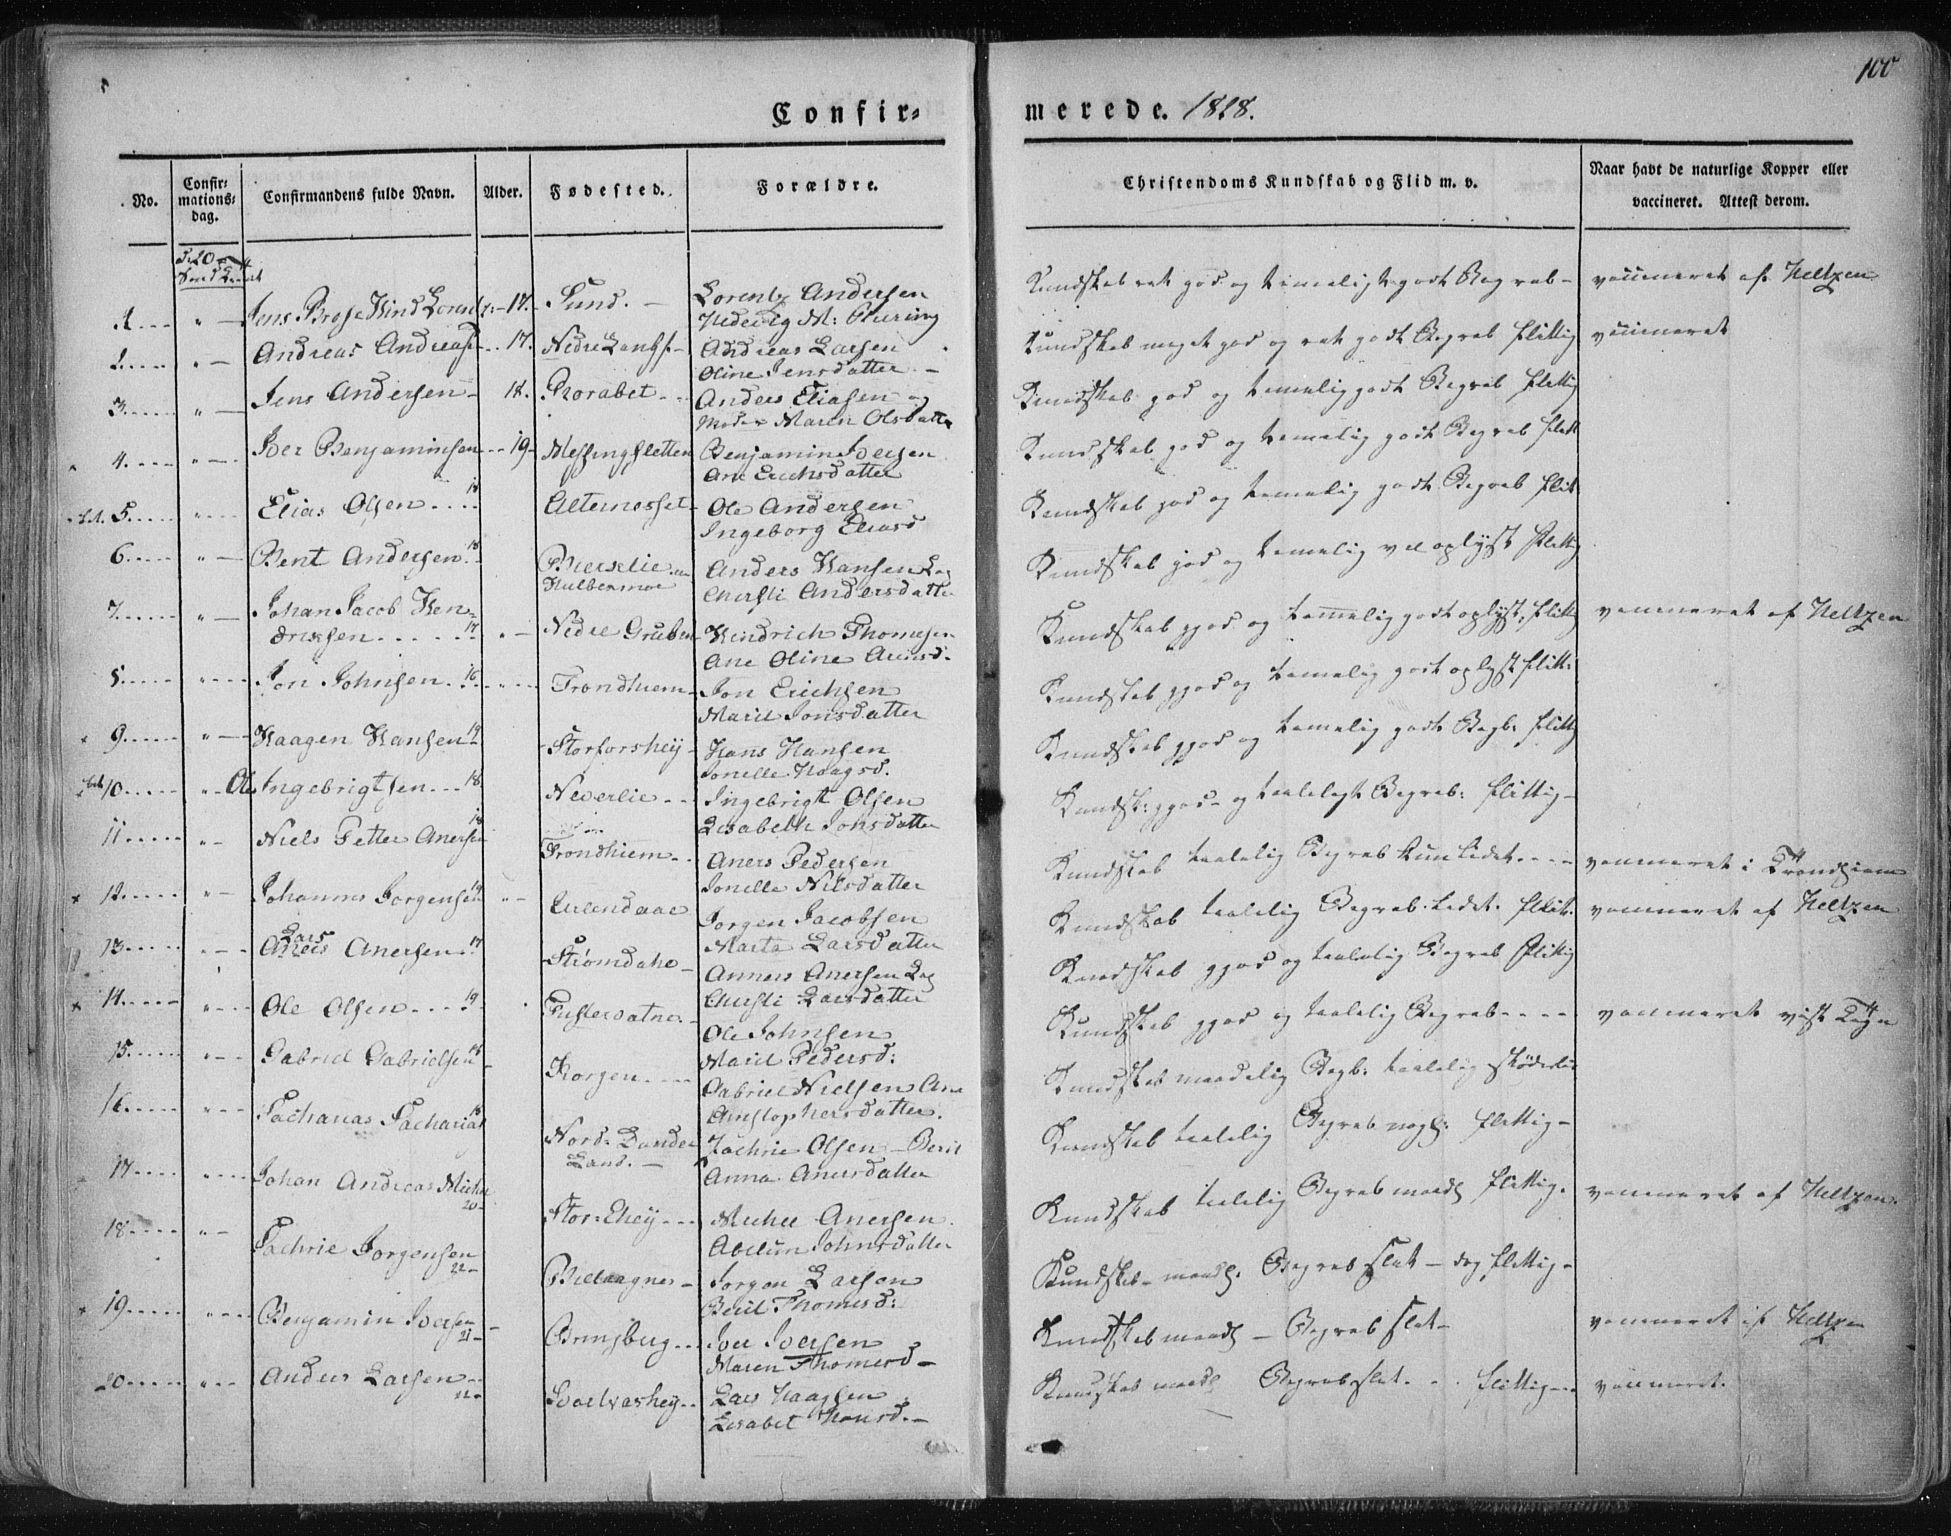 100
Confir= merede. 1828.
No.
Confir=
mations=
dag.
Confirmandens fulde Navn.
Alder.
Fødested.
Forældre.
Christendoms Kundskab og Flid m. v.
Naar havt de naturlige Kopper eller
vaccineret. Attest derom.
1 Jens 17. Sund. Lorentz Andersen
Kundskab ret god og temeligt godt Begreb vaccineret af Heltzen
2 Andreas Andreas 17. Nedre Andreas Larsen
Oline Jensdatter
Kundskab meget god og ret godt Begreb flittig vaccineret
3 Jens Andersen 18. Anders Eliasen og
Moder Maren Olsdatter
Kundskab god og temelig godt Begreb flittig
4 Iver Benjaminsen 19 Messingsletten Benjamin Iversen
Ane Erichsdatter
Kundskab god og temelig godt Begreb flitt
5 Elias Olsen 18 Alternesset Ole Andersen
Ingeborg Eliasd
Kundskab god og temelig godt Begreb flit
6 Bent Andersen 18 Anders Hansen
Christi Andersdatter
Kundskab god og temelig vel oplyst flittig
7 Johan Jacob Hen=
drichsen 17 Nedre Gruben Hindrich Thomesen
Ane Oline
Kundskab god og temmelig godt oplyst, flittig vaccineret af Heltzen
8 Jon Johnsen 16 Trondhiem Jon Erichsen
Marit Jonsdatter
Kundskab god og temelig godt oplyst flitt:
9 Haagen Hansen 19 Storforshey Hans Hansen
Jonelle Haagsd.
Kundskab god og temelig godt Begb: flittig
10 Ole Ingebrigtsen 18 Neverlie Ingebrigt Olsen
Lisabeth Jonsdatter
Kundsk: god og taaleligt Begreb: flittig
11 Niels Petter Anersen 18 Trondhiem Aners Pedersen
Jonelle Nilsdatter
Kundskab taalelig Begreb kun Lidet vaccineret i Trondhiem
12 Johannes Jorgensen 19 Jorgen Jacobsen
Marta Larsdatter
Kundskab taalelig Begreb Lidet flit. vaccineret af Heltzen
13 Lars
Anersen 17 Strømdahl Anners Anersen
Christi Larsdatter
Kundskab god og taalelig Begreb flittig
14 Ole Olsen 19 Tustervatne Ole Johnsen
Marit Pedersd:
Kundskab god og taalelig Begreb vaccineret
15 Gabriel Gabrielsen 18 Korgen Gabriel Nielsen Ane
Christophersdatter.
Kundskab maadelig Begb: taalelig
16 Zacharias Zacharias 18 Nord:
Land. Zachrie Olsen Berit
Anna Anersdatter
Kundskab taalelig Begreb flittig
17 Johan Andreas Michel
20 Michel Anersen
Abelun Johnsdatter
Kundskab taalelig Begreb maadl flittig. vaccineret af Heltzen.
18 Zachrie Jorgensen
22 Jorgen Larsen
Berit Thomesd:
Kundskab maadl: Begreb slet dog flittig
19 Benjamin Iversen
21 Iver Iversen
Maren Thomesd
Kundskab maadl Begreb slet vaccineret af Heltzen
20 Anders Larsen Lars Haagsen
Lisabet Hansd.
Kundskab maadl Begreb slet flittig vaccineret.